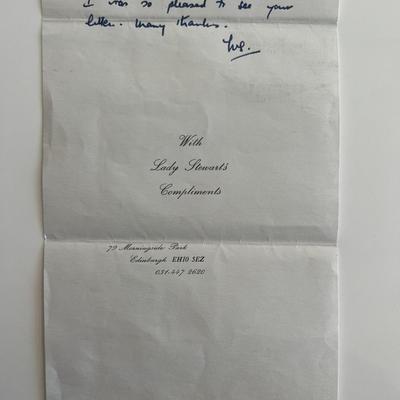 I was so pleased to see your
letter. Many thanks.
With
Lady Stewart's
Compliments
79 Morningside Park
Edinburgh EH10 5EZ
031-447 2620